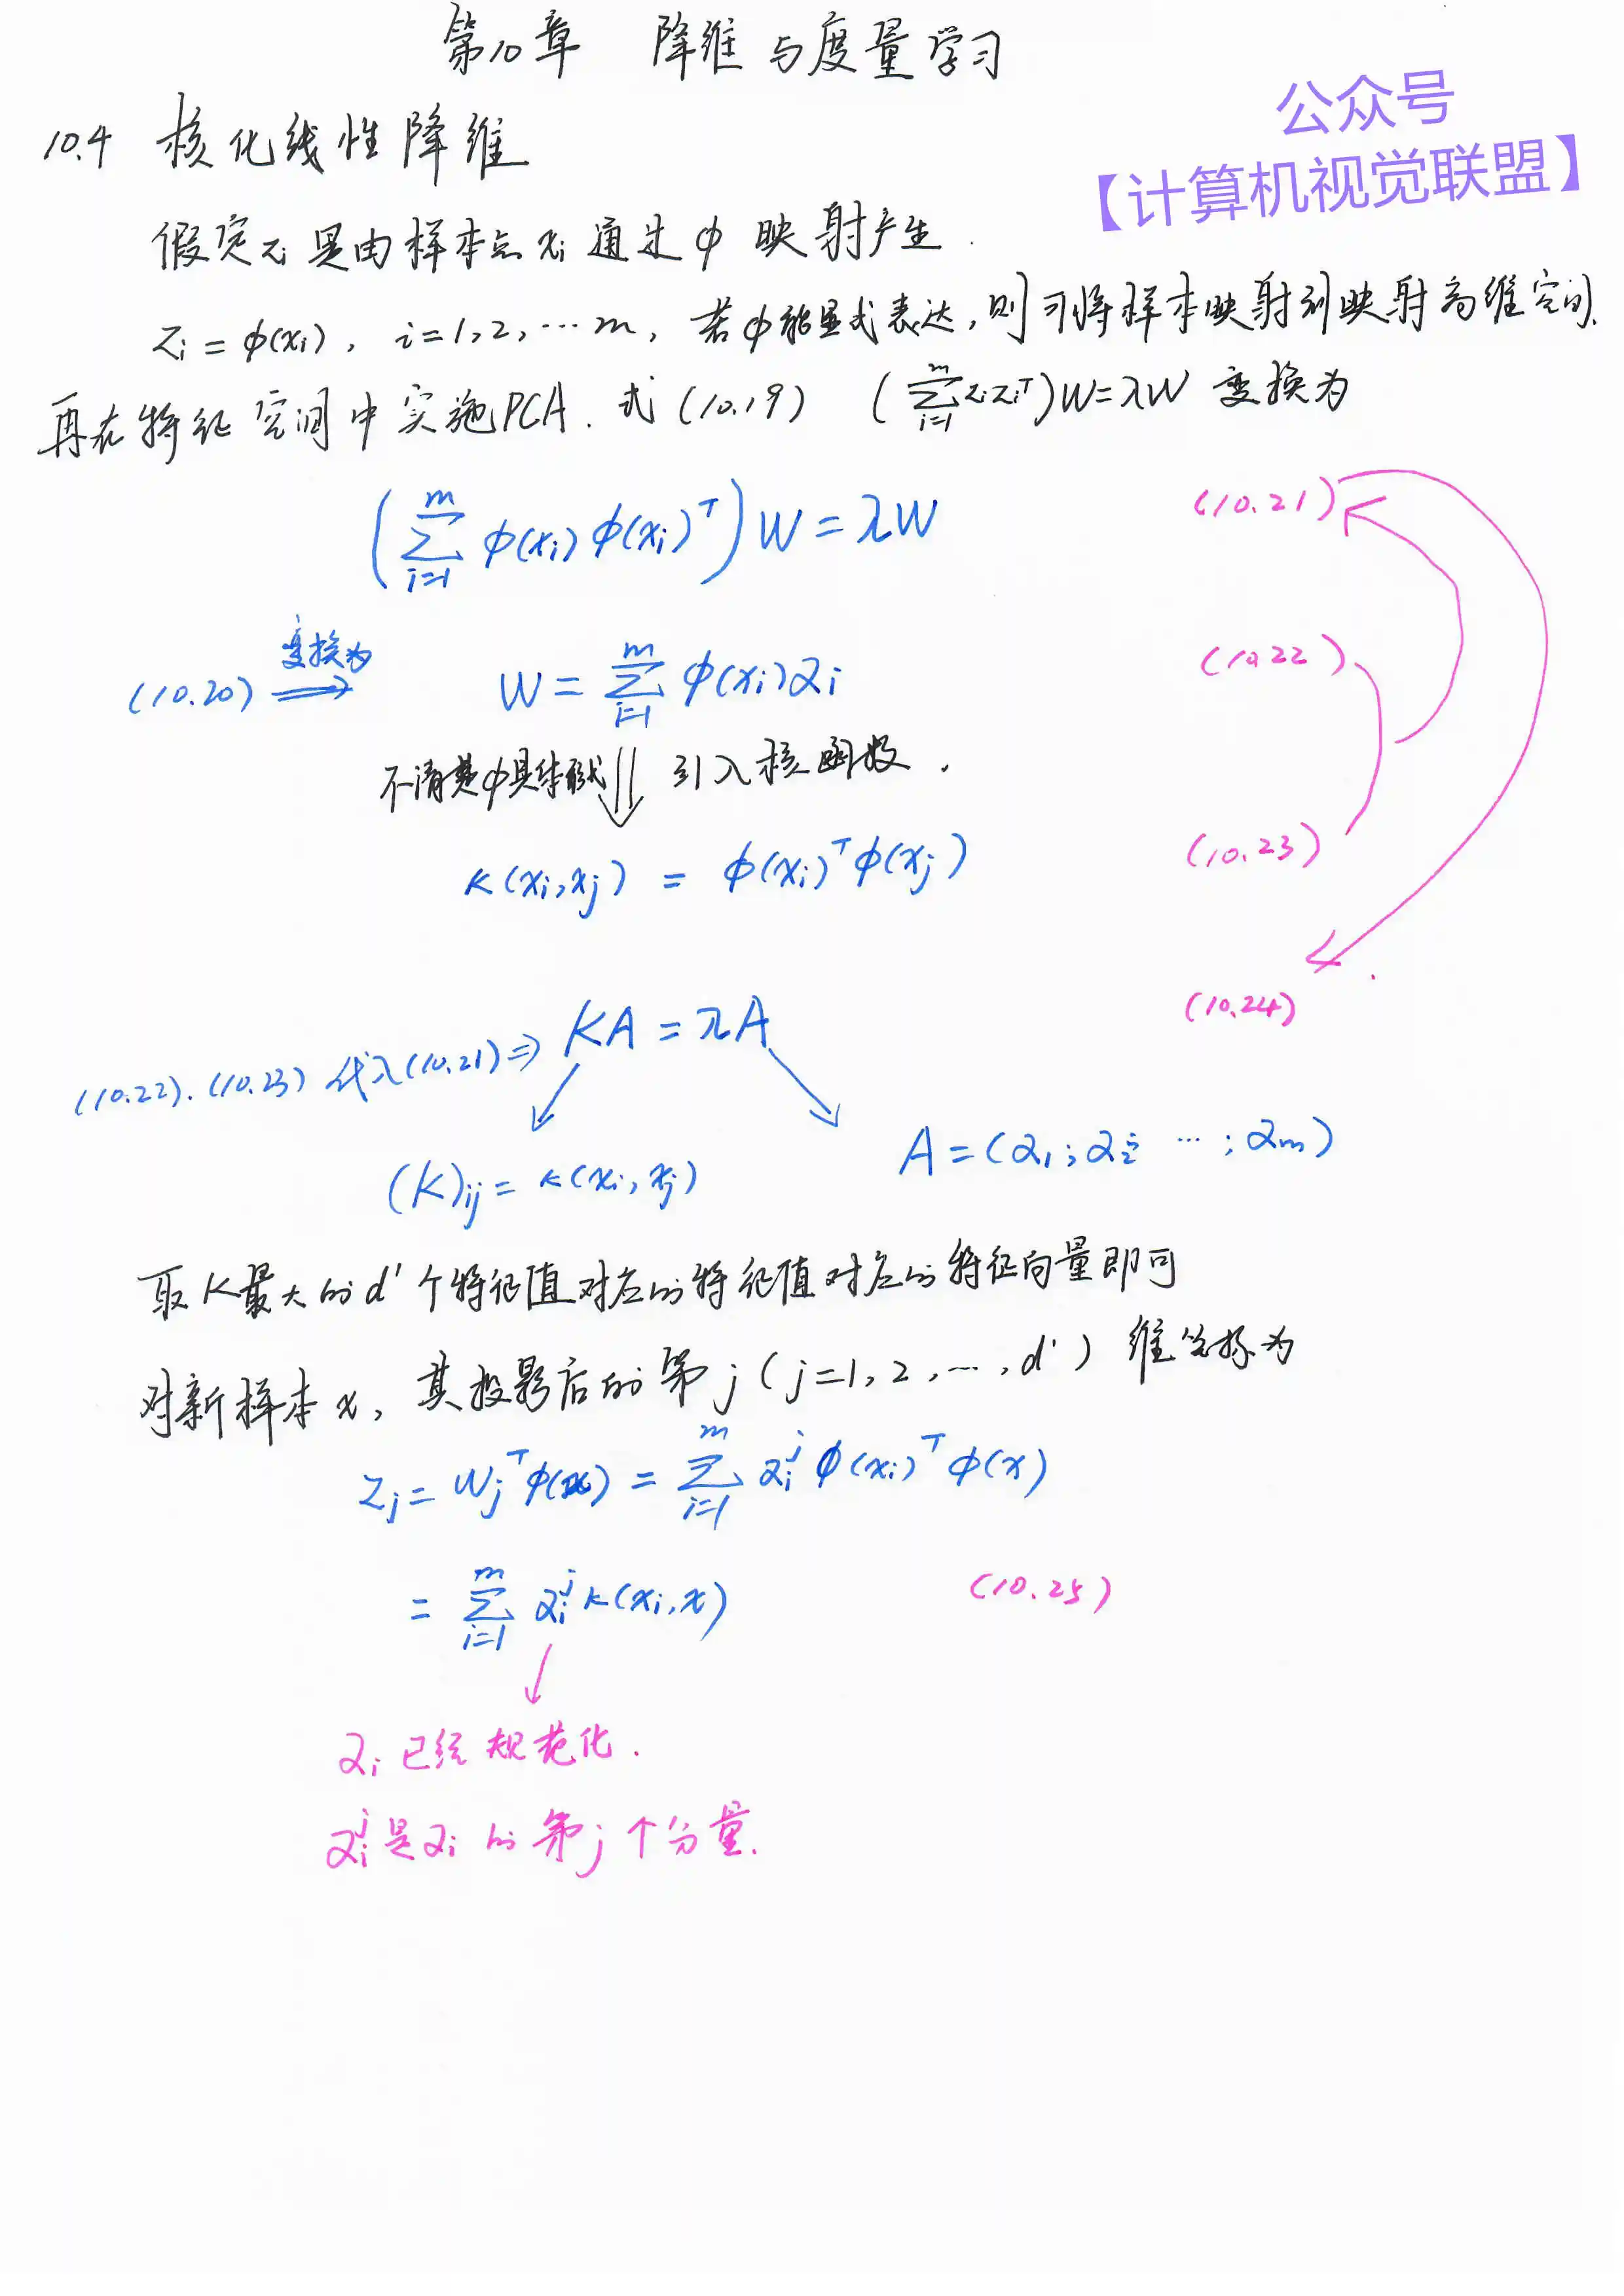 第10章 降维与度量学习
公众号
【计算机视觉联盟】
10.4 核化线性降维
假定zᵢ是由样本点xᵢ通过φ映射产生.
zᵢ = φ(xᵢ), i=1,2,…m, 若φ能显式表达,则可将样本映射到映射高维空间.
再在特征空间中实施PCA. 式(10.19) (∑ᵢ₌₁ᵐ zᵢzᵢᵀ)W=λW 变换为
(∑ᵢ₌₁ᵐ φ(xᵢ)φ(xᵢ)ᵀ)W = λW (10.21)
(10.20) ⟹ 变换为 W = ∑ᵢ₌₁ᵐ φ(xᵢ)αᵢ (10.22)
不清楚φ具体形式 ⇓ 引入核函数.
κ(xᵢ,xⱼ) = φ(xᵢ)ᵀφ(xⱼ) (10.23)
(10.22).(10.23)代入(10.21)⇒ KA = λA (10.24)
(K)ᵢⱼ = κ(xᵢ,xⱼ) A=(α₁;α₂; … ;αₘ)
取K最大的d'个特征值对应的特征值对应的特征向量即可
对新样本x,其投影后的第j(j=1,2,…,d')维坐标为
zⱼ = wⱼᵀφ(x) = ∑ᵢ₌₁ᵐ αᵢʲφ(xᵢ)ᵀφ(x)
= ∑ᵢ₌₁ᵐ αᵢʲκ(xᵢ,x) (10.25)
αᵢ已经规范化.
αᵢʲ是αᵢ的第j个分量.